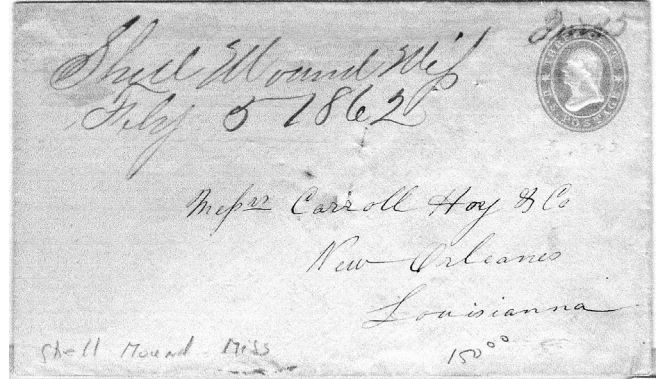 Shell Mound Mifs
Feby 5 1862
Paid 5
Mefsrs Carroll Hoy & Co
New Orleanes
Louisianna
Shell Mound Miss
150⁰⁰